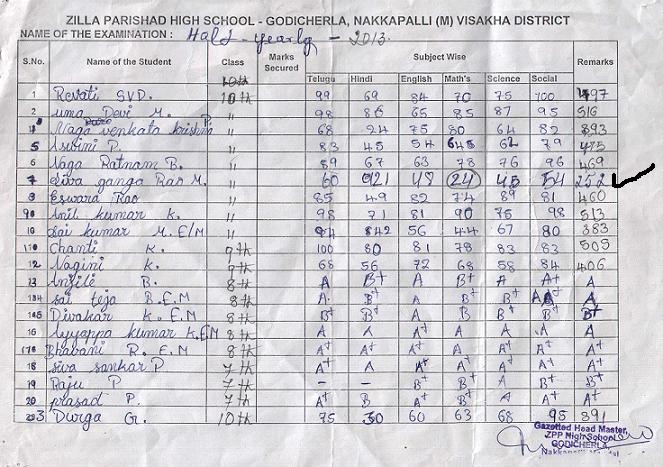 ZILLA PARISHAD HIGH SCHOOL - GODICHERLA, NAKKAPALLI (M) VISAKHA DISTRICT
NAME OF THE EXAMINATION : Half - yearly - 2013.
S.No. Name of the Student Class Marks Secured Subject Wise Remarks
Telugu Hindi English Math's Science Social
1 Revati S.V.D. 10th 99 69 84 70 75 100 497
2 uma Devi M. " 98 86 65 85 87 95 516
Naga venkata krishna P. " 68 24 75 80 64 82 393
5 Asvini P. " 83 45 54 62 79
6 Naga Ratnam B. " 89 67 63 78 76 96 469
7 Siva ganga Rao M. " 60 48 24 45 54 252
Eswara Rao " 85 49 82 74 89 81 460
Anil kumar k. " 98 71 81 90 75 98 513
10 Sai kumar M. E/M " 56 44 67 80 383
Chanti K. 9th 100 80 81 78 83 83 505
12 Nagini K. 9th 68 56 72 68 58 84 406
B. 8th A B+ A B+ A A+ A
sai teja B.E.M 8th A B+ A B+ B+ A
Divakar K. E.M 8th B+ B+ A B+ B+ B+ B+
Ayyappa kumar K.E.M 8th A A A+ A A A A
Bhavani R. E.M 8th A+ A+ A A+ A+ A+ A+
18 Siva sankar P 7th A+ A A+ A+ A A+ A+
19 Raju P 7th - - B+ B+ A B+ B+
20 prasad P. 7th A B A A+ A A+ A+
Durga G. 10th 75 30 60 63 68 95 391
Gazetted Head Master,
ZPP High School
GODICHERLA,